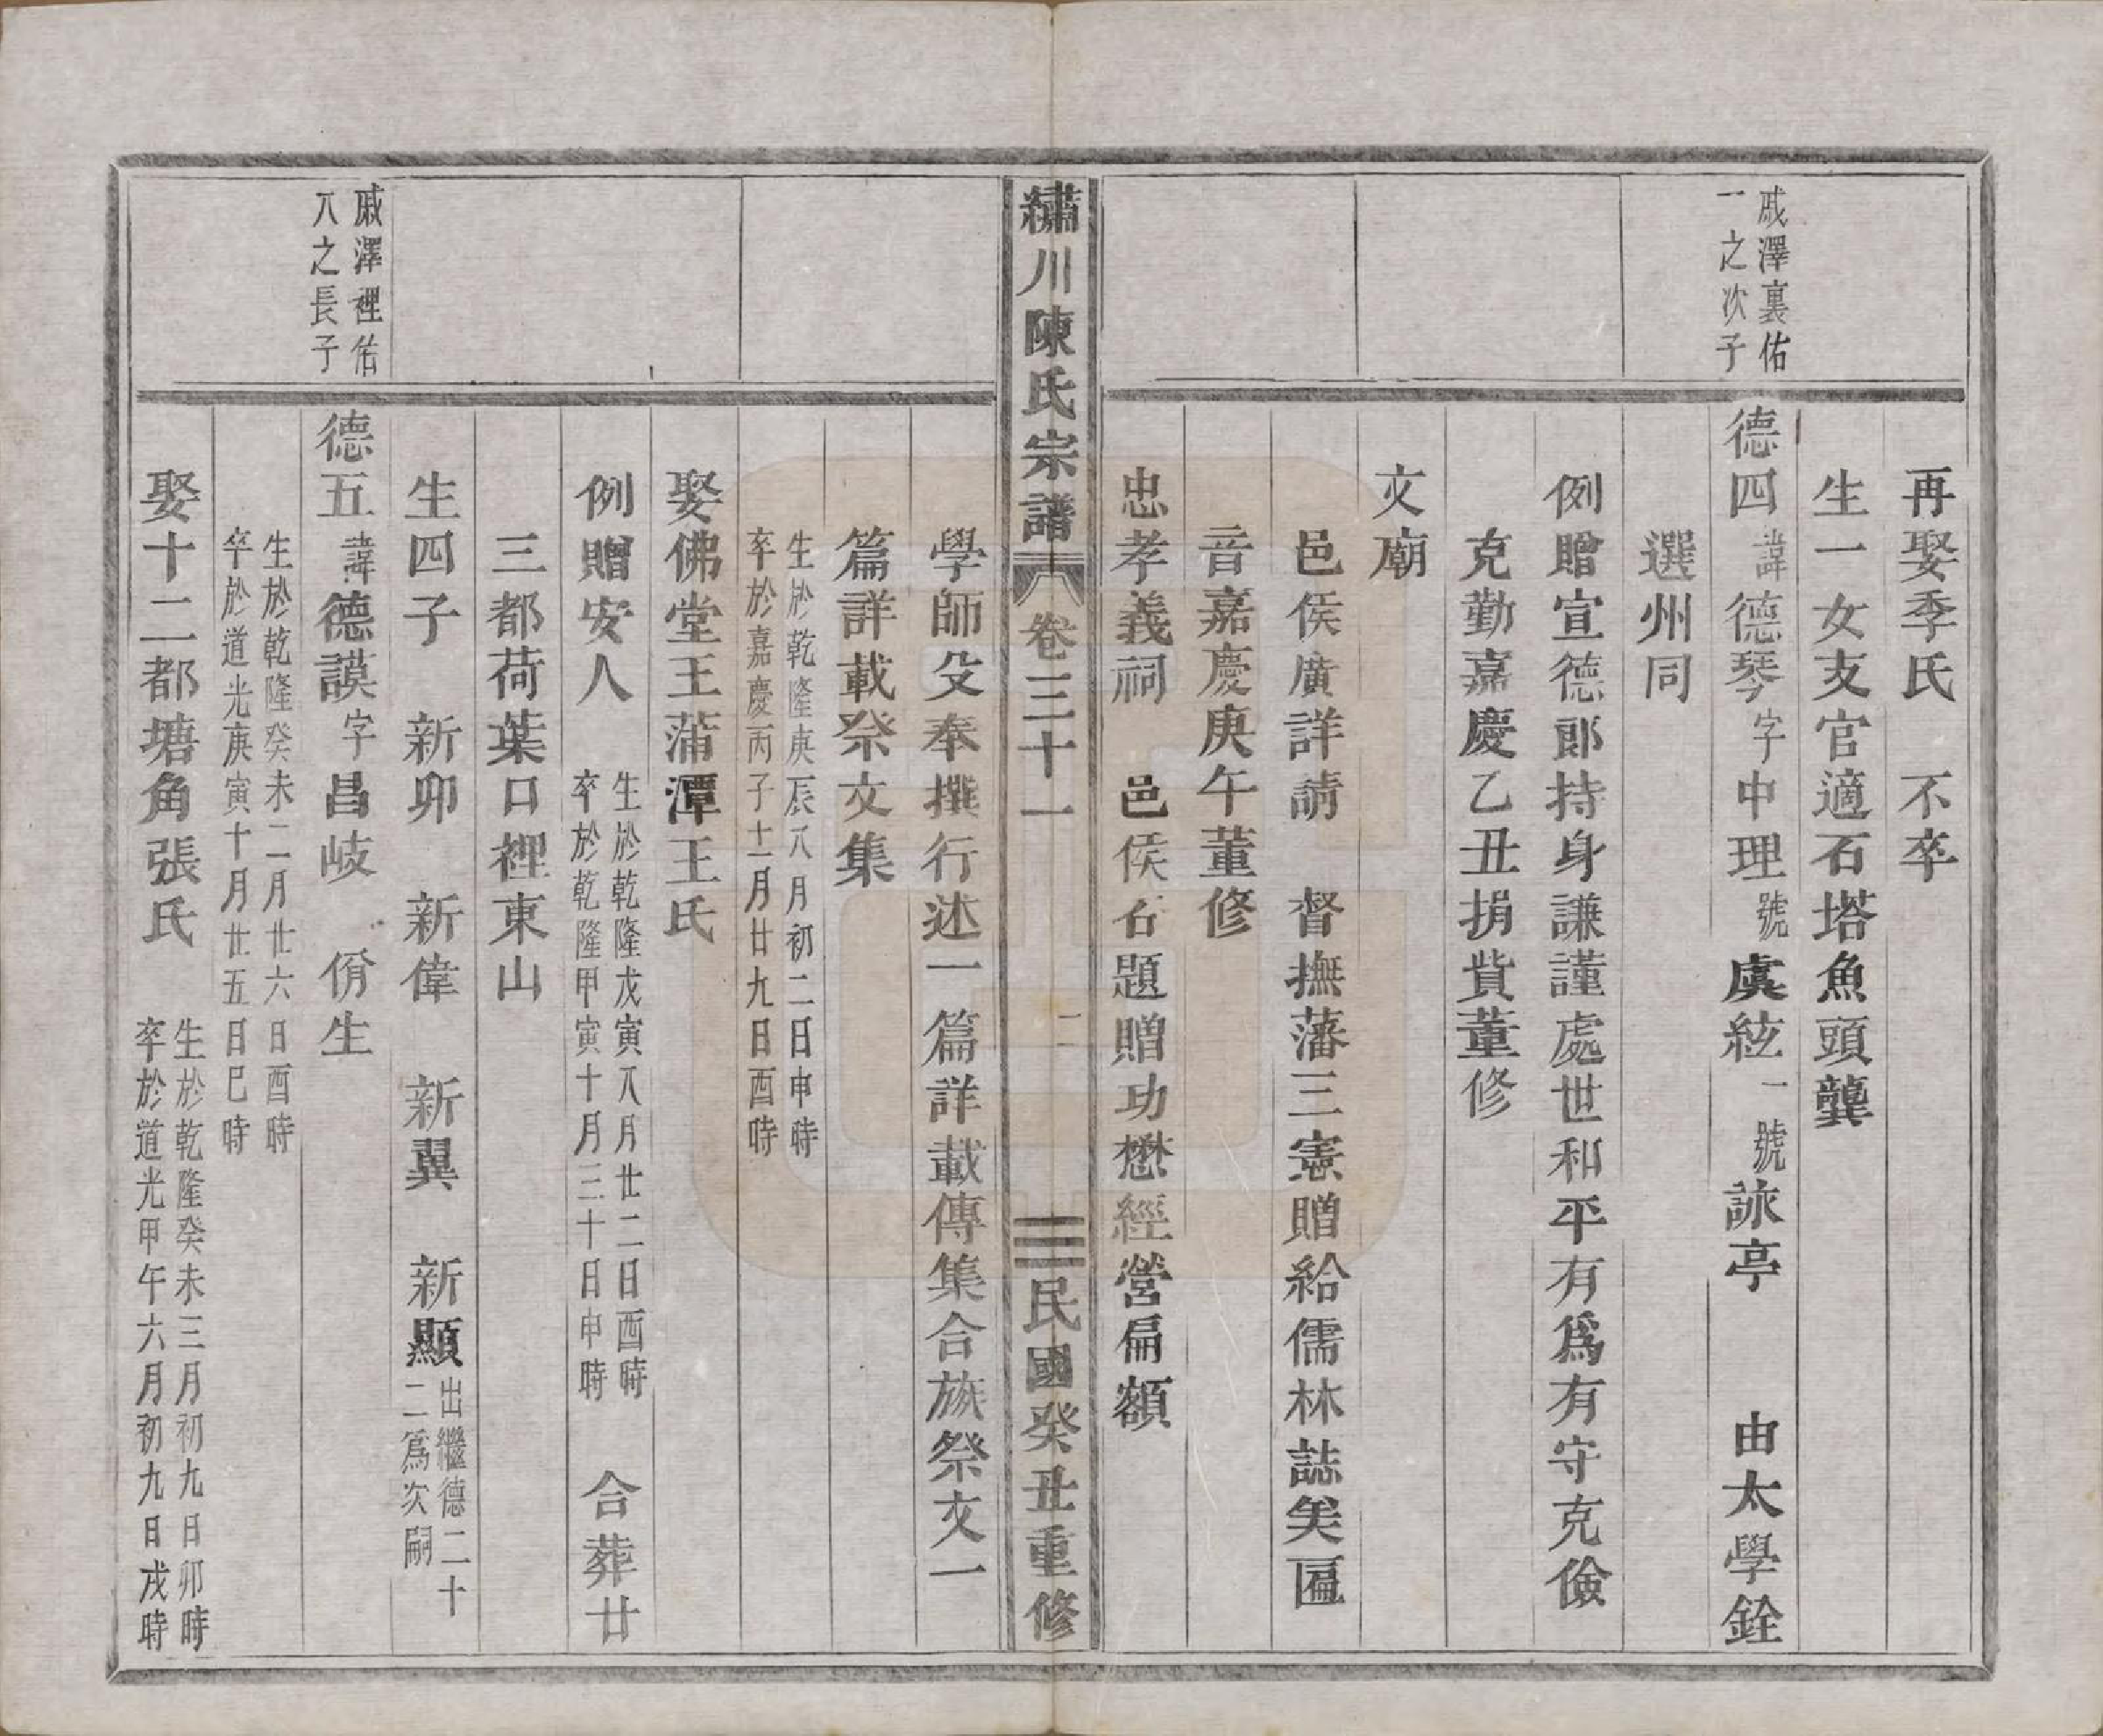 再娶季氏　不卒
生一女支官適石塔魚頭龔
戚澤裏佑
一之次子
德四諱德琴字中理號虞絃一號詠亭　由太學銓
選州同
例贈宣德郎持身謙謹處世和平有爲有守克儉
克勤嘉慶乙丑捐貲董修
文廟
邑侯廣詳請　督撫藩三憲贈給儒林誌美匾
音嘉慶庚午董修
忠孝義祠　邑侯石題贈功懋經營扁額
繡川陳氏宗譜　卷三十一　二　民國癸丑重修
學師殳奉撰行述一篇詳載傳集合族祭文一
篇詳載祭文集
生於乾隆庚辰八月初二日申時
卒於嘉慶丙子十一月廿九日酉時
娶佛堂王蒲潭王氏
例贈安人
生於乾隆戊寅八月廿二日酉時
卒於乾隆甲寅十月三十日申時
合葬廿
三都荷葉口裡東山
生四子　新卯　新偉　新翼　新顯
出繼德二十
二爲次嗣
戚澤裡佑
八之長子
德五諱德謨字昌岐　佾生
生於乾隆癸未二月廿六日酉時
卒於道光庚寅十月廿五日巳時
娶十二都塘角張氏
生於乾隆癸未三月初九日卯時
卒於道光甲午六月初九日戌時